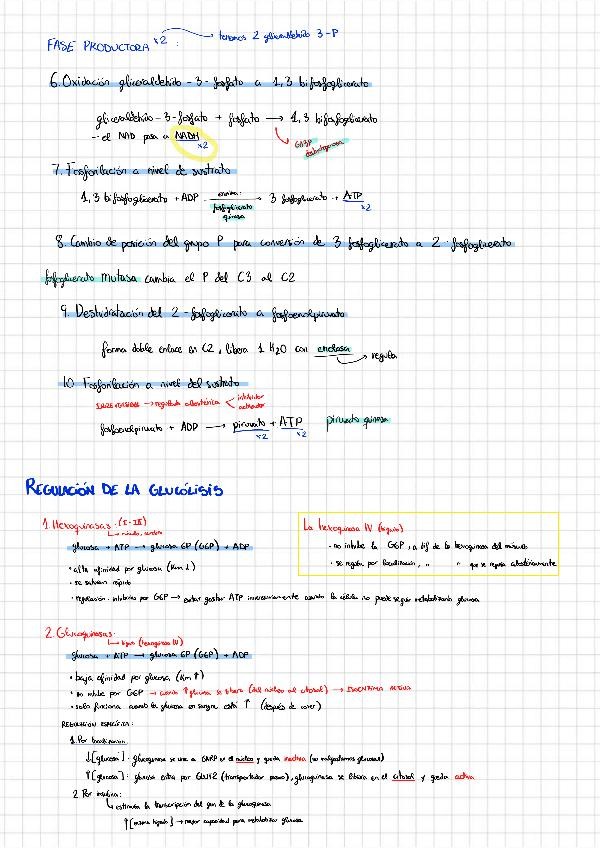 FASE PRODUCTORA x2 : → tenemos 2 gliceraldehido 3-P
6. Oxidación gliceraldehido - 3 - fosfato a 1,3 bifosfoglicerato
gliceraldehido - 3 - fosfato + fosfato → 1,3 bifosfoglicerato
- el NAD pasa a NADH x2
GA3P
deshidrogenasa
7. Fosforilación a nivel de sustrato
1,3 bifosfoglicerato + ADP → 3 fosfoglicerato + ATP x2
enzima:
fosfoglicerato
quinasa
8. Cambio de posición del grupo P para conversión de 3 fosfoglicerato a 2 - fosfoglicerato
fosfoglicerato mutasa cambia el P del C3 al C2
9. Deshidratación del 2 - fosfoglicerato a fosfoenolpiruvato
forma doble enlace en C2, libera 1 H2O con enolasa → regula
10. Fosforilación a nivel del sustrato
IRREVERSIBLE → regulada alostérica < inhibidor
activador
fosfoenolpiruvato + ADP → piruvato x2 + ATP x2 piruvato quinasa
REGULACIÓN DE LA GLUCÓLISIS
1. Hexoquinasas. (I - III)
↳ músculo, cerebro
glucosa + ATP → glucosa 6P (G6P) + ADP
• alta afinidad por glucosa (Km ↓)
• se saturan rápido
• regulación: inhibidas por G6P → evitar gastar ATP innecesariamente cuando la célula no puede seguir metabolizando glucosa
La hexoquinasa IV (hígado)
• no inhibe la G6P, a dif de la hexoquinasa del músculo
• se regula por localización, " " que se regula alostéricamente
2. Glucoquinasas.
↳ hígado (hexoquinasa IV)
glucosa + ATP → glucosa 6P (G6P) + ADP
• baja afinidad por glucosa (Km ↑)
• no inhibe por G6P → cuando ↑ glucosa se libera (del núcleo al citosol) → ISOENZIMA ACTIVA
• solo funciona cuando la glucosa en sangre está ↑ (después de comer)
REGULACIÓN ESPECÍFICA:
1. Por localización:
↓[glucosa]: glucoquinasa se une a GKRP en el núcleo y queda inactiva (no malgastamos glucosa)
↑[glucosa]: glucosa entra por GLUT2 (transportador pasivo), glucoquinasa se libera en el citosol y queda activa
2. Por insulina:
↳ estimula la transcripción del gen de la glucoquinasa
→ mayor capacidad para metabolizar glucosa